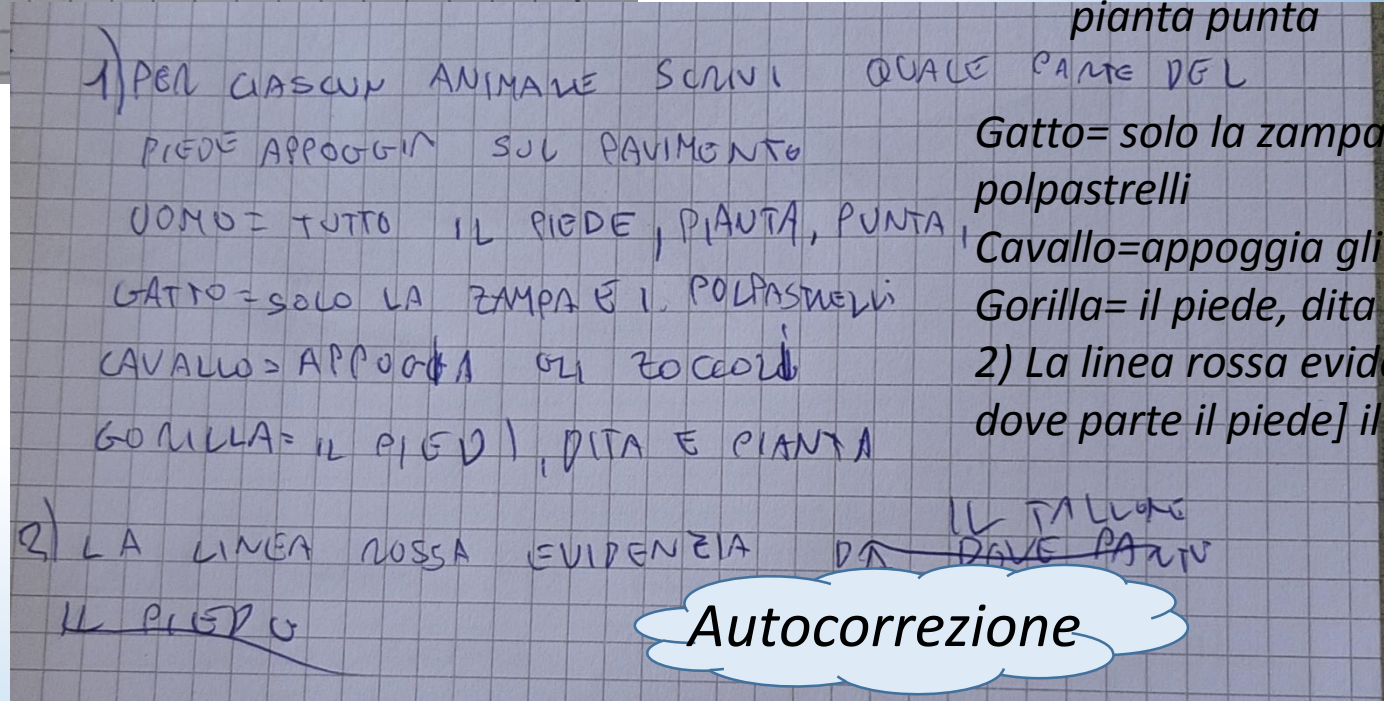 1) PER CIASCUN ANIMALE SCRIVI QUALE PARTE DEL
PIEDE APPOGGIA SUL PAVIMENTO
UOMO= TUTTO IL PIEDE, PIANTA, PUNTA,
GATTO= SOLO LA ZAMPA E I POLPASTRELLI
CAVALLO= APPOGGIA GLI ZOCCOLI
GORILLA= IL PIEDI, DITA E PIANTA
IL TALLONE
2) LA LINEA ROSSA EVIDENZIA DA DOVE PARTE
IL PIEDE
Autocorrezione
pianta punta
Gatto= solo la zampa
polpastrelli
Cavallo=appoggia gli
Gorilla= il piede, dita
2) La linea rossa evid
dove parte il piede] il